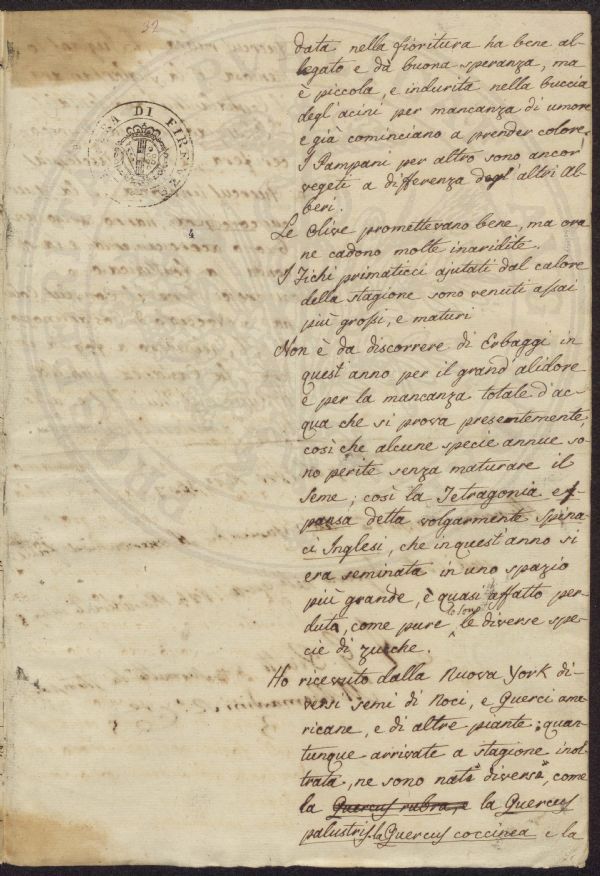 32
A DI FIRENZE
4
data nella fioritura ha bene al-
legato e dà buona speranza, ma
è piccola, e indurita nella buccia
degl'acini per mancanza di umore
e già cominciano a prender colore.
I Pampani per altro sono ancor'
vegeti a differenza degl'altri Al-
beri.
Le Olive promettevano bene, ma ora
ne cadono molte inarilite.
I Fichi primaticci ajutati dal calore
della stagione sono venuti assai
più grossi, e maturi
Non è da discorrere di Erbaggi in
quest'anno per il grand'alidore
e per la mancanza totale d'ac-
qua che si prova presentemente,
così che alcune specie annue so-
no perite senza maturare il
seme; così la Tetragonia ex-
pansa detta volgarmente Spina-
ci Inglesi, che in quest'anno si
era seminata in uno spazio
più grande, è quasi affatto per-
duta, come pure le diverse spe-
cie di zucche.
Ho ricevuto dalla Nuova York di-
versi semi di Noci, e Querci ame-
ricane, e di altre piante; quan-
tunque arrivate a stagione inol-
trata, ne sono nate diverse, come
la Quercus rubra, e la Quercus
palustris, la Quercus coccinea e la